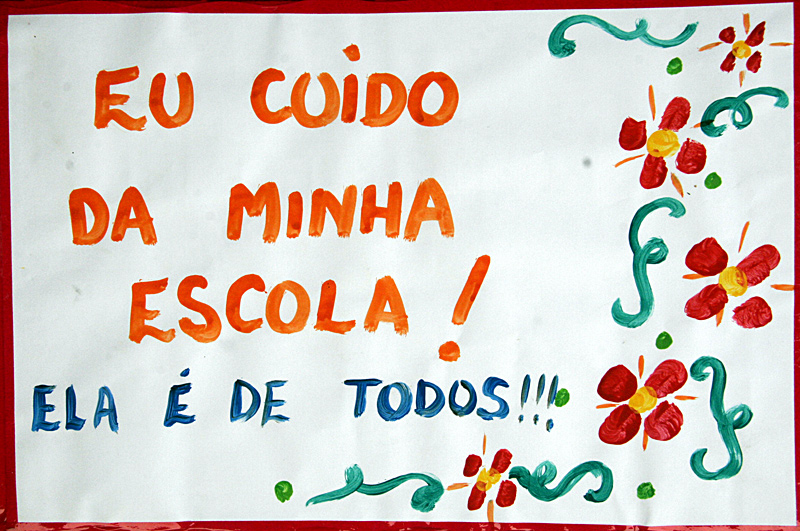 EU CUIDO
DA MINHA
ESCOLA!
ELA É DE TODOS!!!